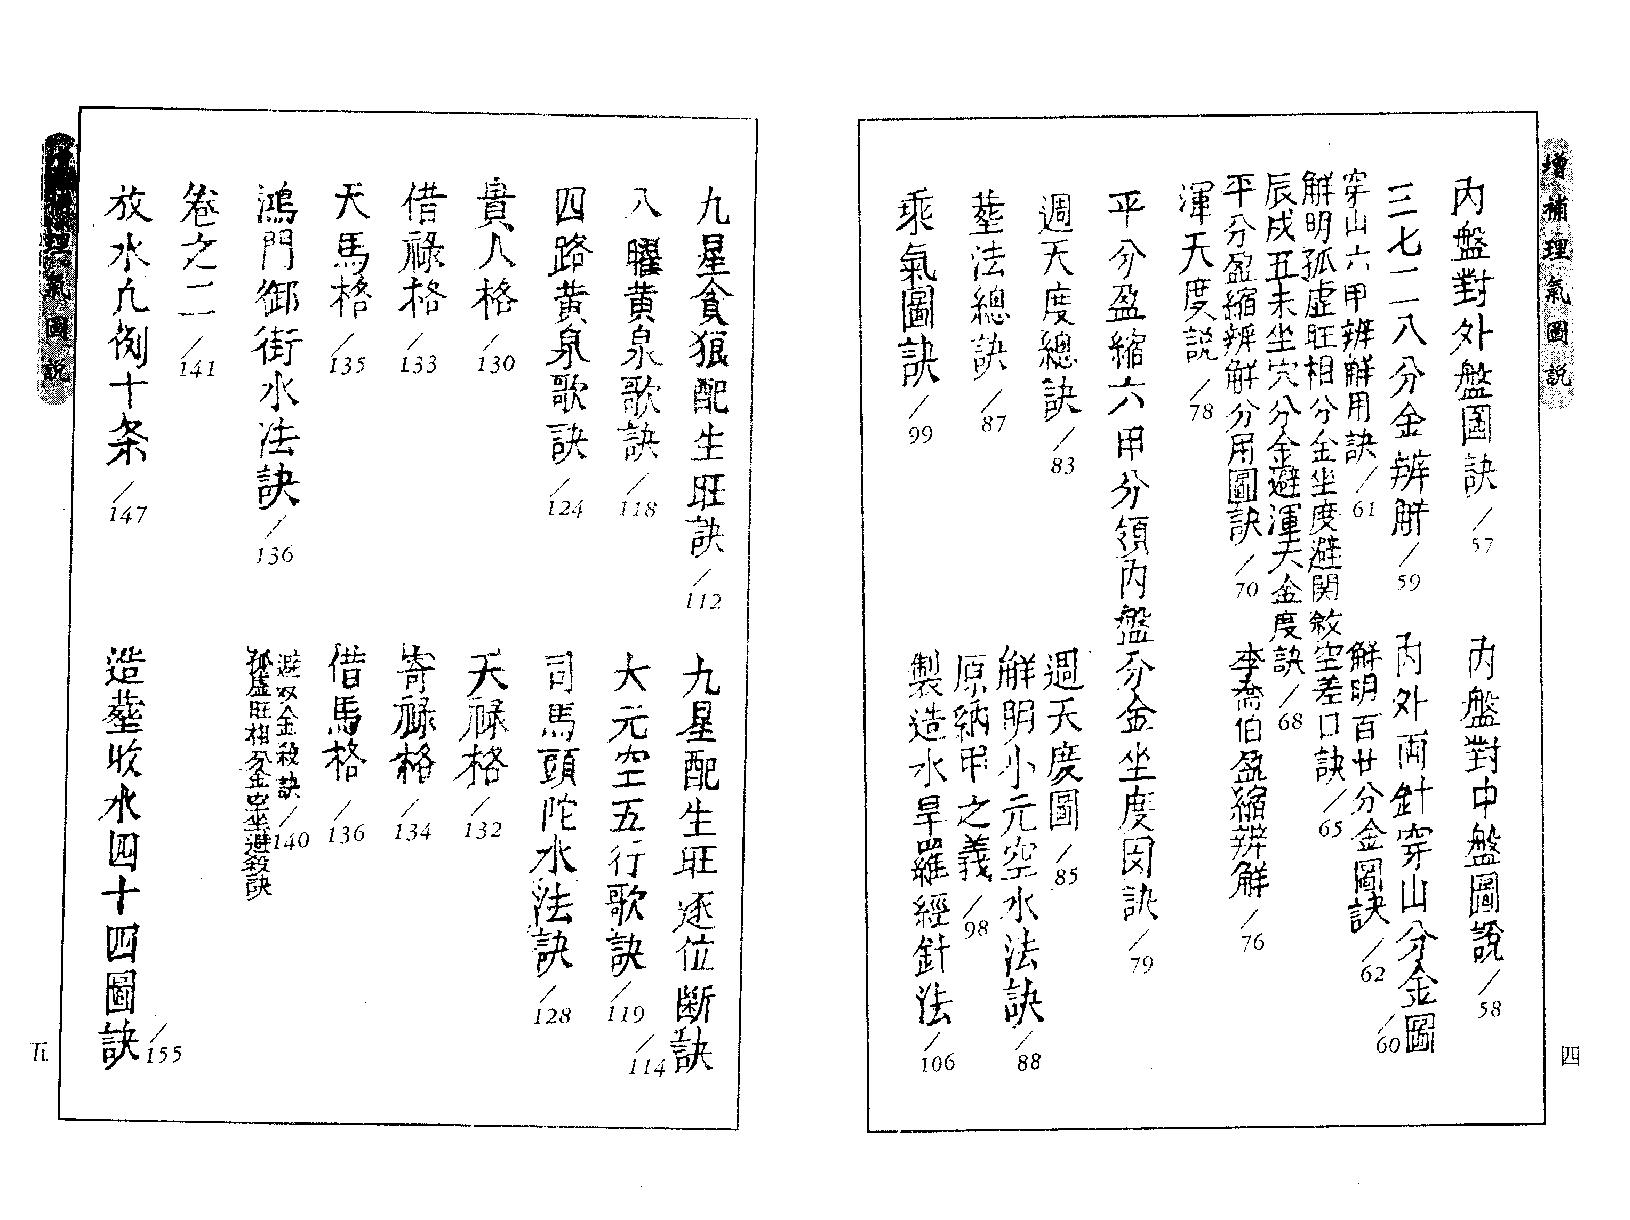 增補理氣圖說
內盤對外盤圖訣/57
內盤對中盤圖說/58
三七二八分金辨解/59
內外両針穿山分金圖/60
穿山六甲辨解用訣/61
解明百廿分金圖訣/62
解明孤虛旺相分金坐度避関敘空差口訣/65
辰戌丑未坐穴分金避渾天金度訣/68
平分盈縮辨解分用圖訣/70
李喬伯盈縮辨解/76
渾天度説/78
平分盈縮六甲分領內盤分金坐度図訣/79
週天度總訣/83
週天度圖/85
塟法總訣/87
解明小元空水法訣/88
原納甲之義/98
乘氣圖訣/99
製造水旱羅經針法/106
四
九星貪狼配生旺訣/112
九星配生旺逐位斷訣/114
八曜黃泉歌訣/118
大元空五行歌訣/119
四路黃泉歌訣/124
司馬頭陀水法訣/128
貴人格/130
天祿格/132
借祿格/133
寄祿格/134
天馬格/135
借馬格/136
鴻門御街水法訣/136
避双金殺訣/140
孤虛旺相分金坐避殺訣
卷之二/141
放水九例十条/147
造塟收水四十四圖訣/155
理氣圖説
五